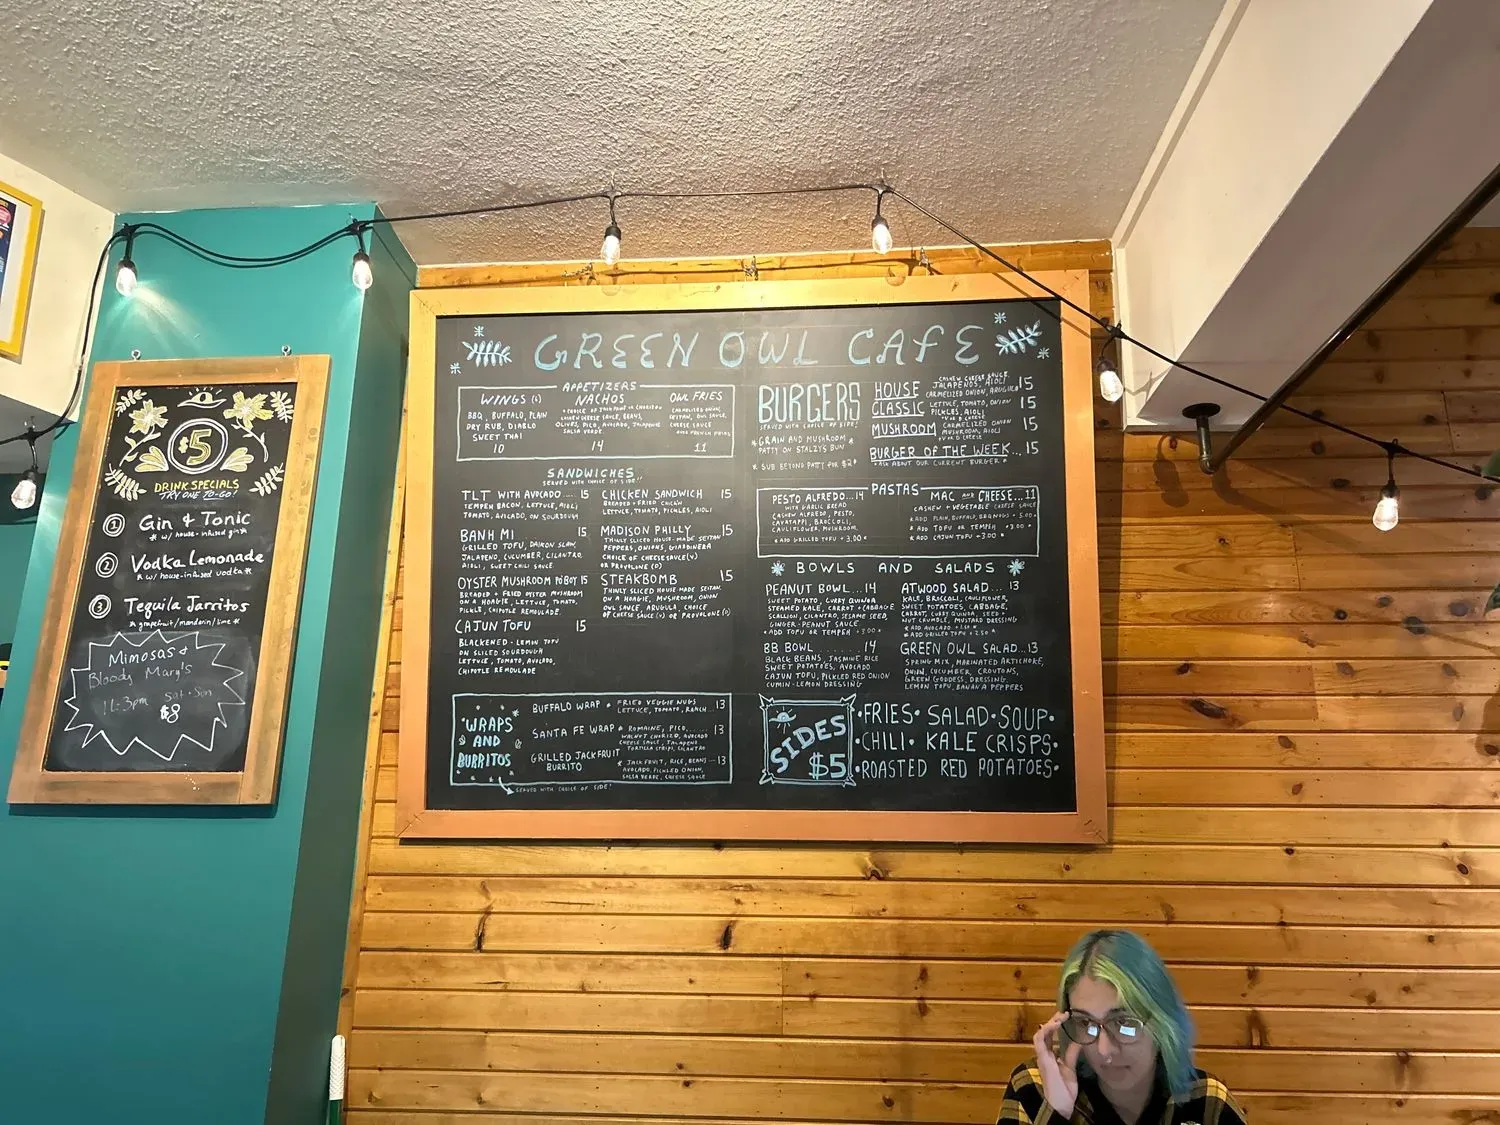 $5
DRINK SPECIALS
TRY ONE TO-GO!
1 Gin & Tonic
* w/ house-infused gin *
2 Vodka Lemonade
* w/ house-infused vodka *
3 Tequila Jarritos
* grapefruit/mandarin/lime *
Mimosas &
Bloody Mary's
11-3pm Sat + Sun
$8
GREEN OWL CAFE
APPETIZERS
WINGS (6)
BBQ, BUFFALO, PLAIN
DRY RUB, DIABLO
SWEET THAI
10
NACHOS
CASHEW CHEESE SAUCE, BEANS,
OLIVES, PICO, AVOCADO, JALAPENOS
SALSA VERDE
14
OWL FRIES
CARMELIZED ONION,
OWL SAUCE,
CHEESE SAUCE
11
SANDWICHES
SERVED WITH CHOICE OF SIDE!
TLT WITH AVOCADO.... 15
TEMPEH BACON, LETTUCE, AIOLI
TOMATO, AVOCADO, ON SOURDOUGH
BANH MI 15
GRILLED TOFU, DAIKON SLAW,
JALAPENO, CUCUMBER, CILANTRO,
AIOLI, SWEET CHILI SAUCE
OYSTER MUSHROOM PO'BOY 15
BREADED + FRIED OYSTER MUSHROOM
ON A HOAGIE, LETTUCE, TOMATO,
PICKLE, CHIPOTLE REMOULADE
CAJUN TOFU 15
BLACKENED - LEMON TOFU
ON SLICED SOURDOUGH
LETTUCE, TOMATO, AVOCADO,
CHIPOTLE REMOULADE
CHICKEN SANDWICH 15
BREADED + FRIED CHICK'N
LETTUCE, TOMATO, PICKLES, AIOLI
MADISON PHILLY 15
THINLY SLICED HOUSE-MADE SEITAN
PEPPERS, ONIONS, GIARDINERA
CHOICE OF CHEESE SAUCE (V)
OR PROVOLONE (D)
STEAKBOMB 15
THINLY SLICED HOUSE MADE SEITAN,
ON A HOAGIE, MUSHROOM, ONION
OWL SAUCE, ARUGULA, CHOICE
OF CHEESE SAUCE (V) OR PROVOLONE (D)
WRAPS
AND
BURRITOS
BUFFALO WRAP * FRIED VEGGIE NUGS
LETTUCE, TOMATO, RANCH...13
SANTA FE WRAP * ROMAINE, PICO.......13
WALNUT CHORIZO, AVOCADO
CHEESE SAUCE, JALAPENO
TORTILLA CRISPS, CILANTRO
GRILLED JACKFRUIT
BURRITO
* JACKFRUIT, RICE, BEANS—13
AVOCADO, PICKLED ONION,
SALSA VERDE, CHEESE SAUCE
SERVED WITH CHOICE OF SIDE!
BURGERS
SERVED WITH CHOICE OF SIDE!
* GRAIN AND MUSHROOM *
PATTY ON STALZYS BUN
* SUB BEYOND PATTY FOR $2 *
HOUSE 15
CASHEW CHEESE SAUCE,
JALAPENOS, AIOLI
CARMELIZED ONION, ARUGULA
CLASSIC 15
LETTUCE, TOMATO, ONION
PICKLES, AIOLI
V OR D CHEESE
MUSHROOM 15
CARMELIZED ONION
MUSHROOM, AIOLI
V OR D CHEESE
BURGER OF THE WEEK...15
* ASK ABOUT OUR CURRENT BURGER *
PASTAS
PESTO ALFREDO...14
WITH GARLIC BREAD
CASHEW ALFREDO, PESTO,
CAVATAPPI, BROCCOLI,
CAULIFLOWER, MUSHROOM
* ADD GRILLED TOFU +3.00 *
MAC AND CHEESE...11
CASHEW + VEGETABLE CHEESE SAUCE
* ADD TOFU OR TEMPEH +3.00 *
* ADD CAJUN TOFU +3.00 *
BOWLS AND SALADS
PEANUT BOWL...14
SWEET POTATO, CURRY QUINOA
STEAMED KALE, CARROT + CABBAGE
SCALLION, CILANTRO, SESAME SEED,
GINGER-PEANUT SAUCE
* ADD TOFU OR TEMPEH +3.00 *
BB BOWL ........ 14
BLACK BEANS, JASMINE RICE
SWEET POTATOES, AVOCADO
CAJUN TOFU, PICKLED RED ONION
CUMIN-LEMON DRESSING
ATWOOD SALAD... 13
KALE, BROCCOLI, CAULIFLOWER,
SWEET POTATOES, CABBAGE,
CARROT, CURRY QUINOA, SEED +
NUT CRUMBLE, MUSTARD DRESSING
* ADD AVOCADO +1.50 *
* ADD GRILLED TOFU +2.50 *
GREEN OWL SALAD...13
SPRING MIX, MARINATED ARTICHOKE,
ONION, CUCUMBER, CROUTONS,
GREEN GODDESS DRESSING
LEMON TOFU, BANANA PEPPERS
SIDES
$5
•FRIES• SALAD•SOUP•
•CHILI• KALE CRISPS•
•ROASTED RED POTATOES•